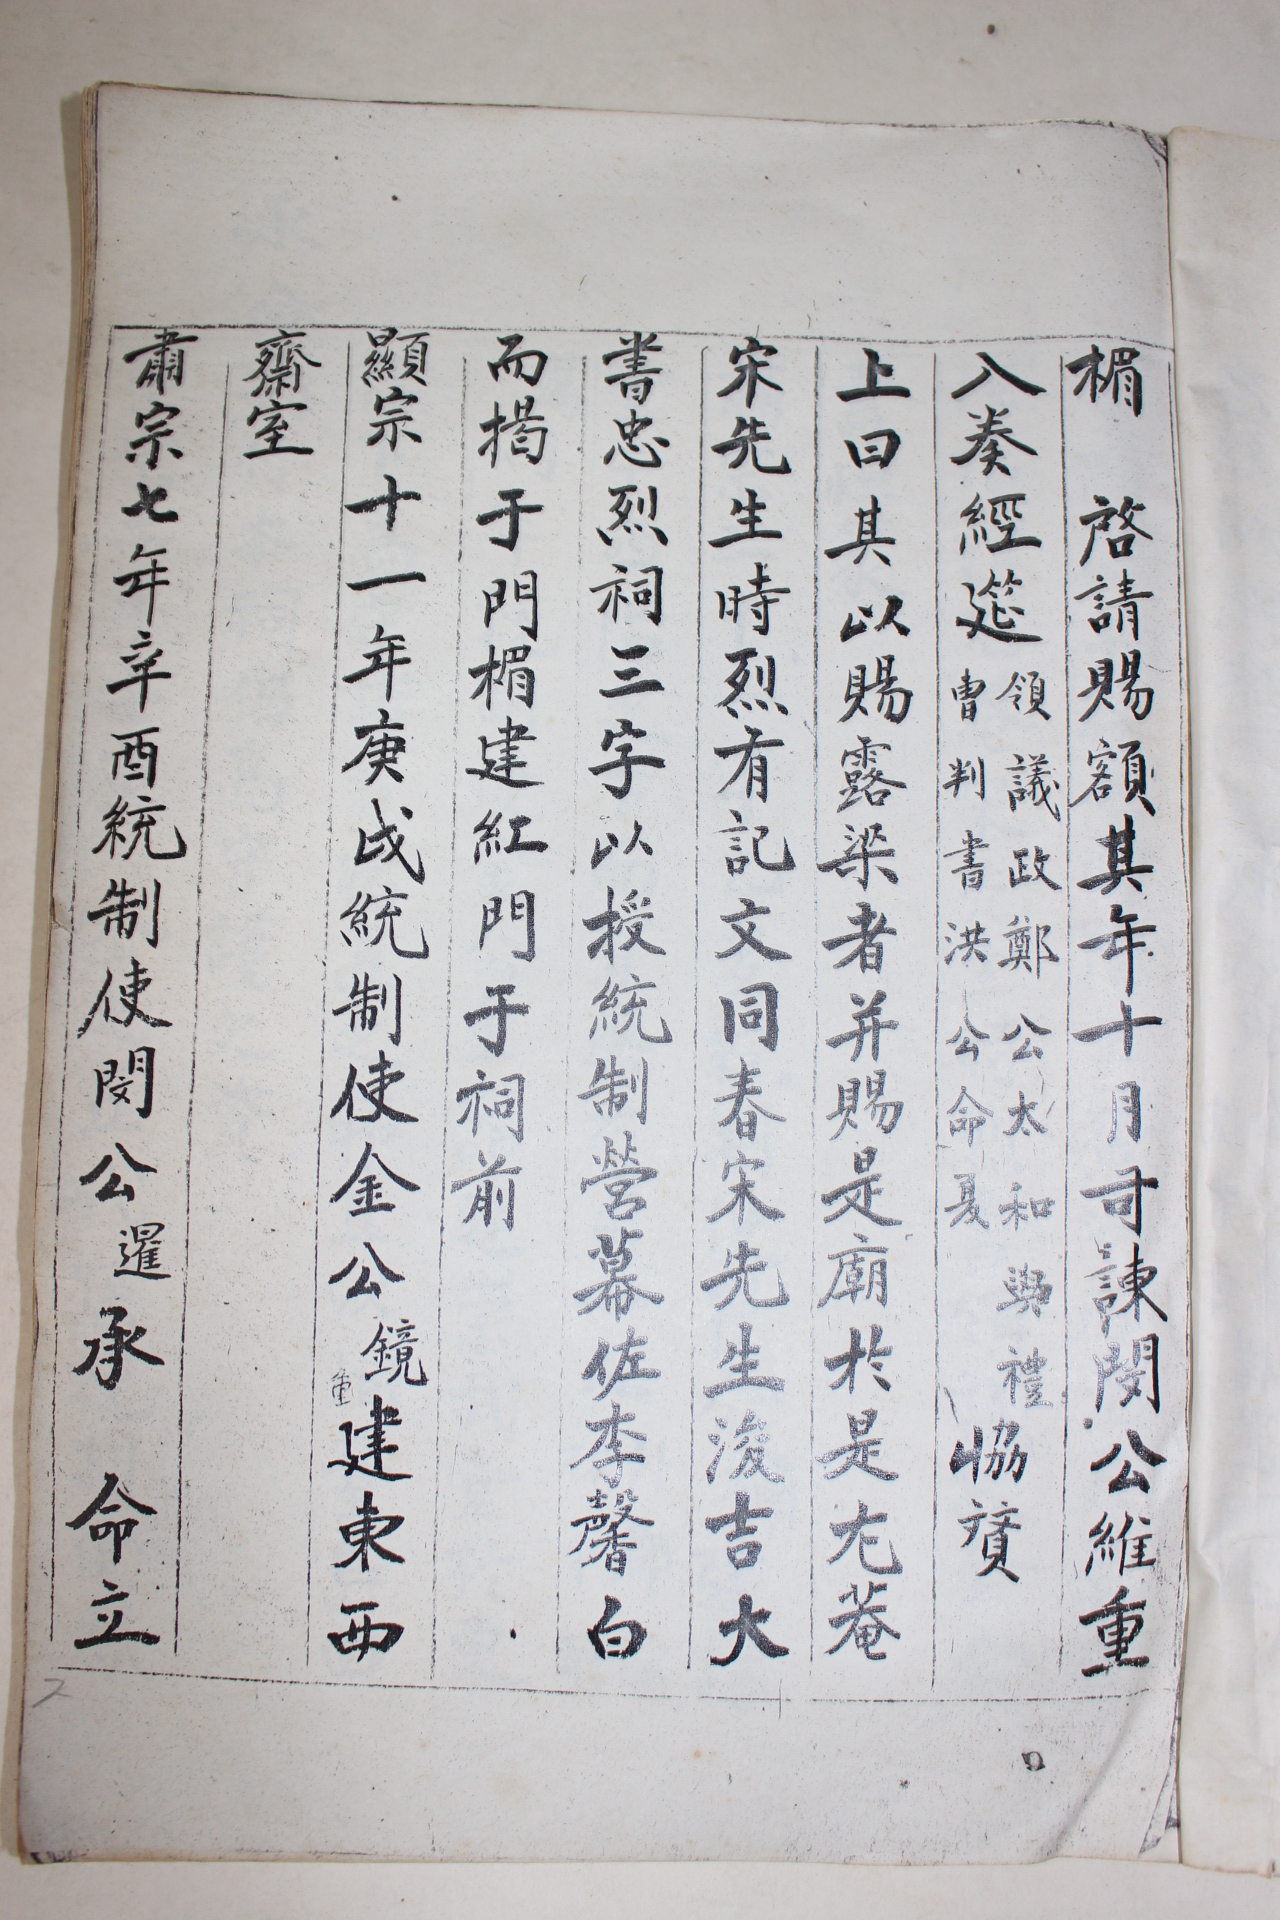 楣 啓請賜額其年十月司諫閔公維重
入奏經筵領議政鄭公太和與禮曹判書洪公命夏協賛
上曰其以賜露梁者并賜是廟於是尤菴
宋先生時烈有記文同春宋先生浚吉大
書忠烈祠三字以授統制營幕佐李馨白
而揭于門楣建紅門于祠前
顯宗十一年庚戌統制使金公鏡重建東西
齋室
肅宗七年辛酉統制使閔公暹承 命立